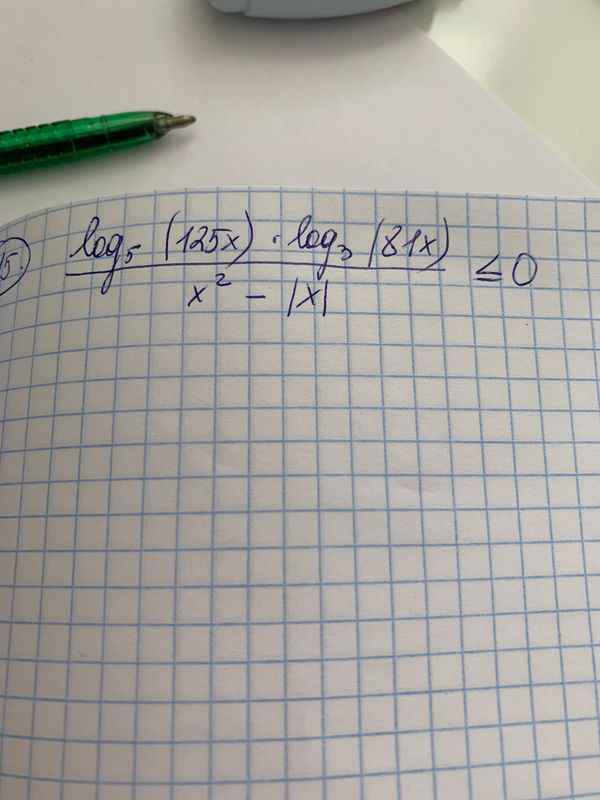 15. log₅ (125x) · log₃ (81x)
x² - |x| ≤ 0